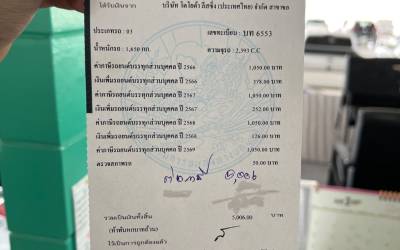 ได้รับเงินจาก บริษัท โตโยต้า ลีสซิ่ง (ประเทศไทย) จำกัด สาขาชล
ประเภทรถ : 03 เลขทะเบียน : บท 6553
น้ำหนักรถ : 1,650 กก. ความจุรถ : 2,393 C.C
ค่าภาษีรถยนต์บรรทุกส่วนบุคคล ปี 2566 1,050.00 บาท
เงินเพิ่มรถยนต์บรรทุกส่วนบุคคล ปี 2566 378.00 บาท
ค่าภาษีรถยนต์บรรทุกส่วนบุคคล ปี 2567 1,050.00 บาท
เงินเพิ่มรถยนต์บรรทุกส่วนบุคคล ปี 2567 252.00 บาท
ค่าภาษีรถยนต์บรรทุกส่วนบุคคล ปี 2568 1,050.00 บาท
เงินเพิ่มรถยนต์บรรทุกส่วนบุคคล ปี 2568 126.00 บาท
ค่าภาษีรถยนต์บรรทุกส่วนบุคคล ปี 2569 1,050.00 บาท
ตรวจสภาพรถ 50.00 บาท
รวมเป็นเงินทั้งสิ้น 5,006.00 บาท
(ห้าพันหกบาทถ้วน)
ไว้เป็นการถูกต้องแล้ว